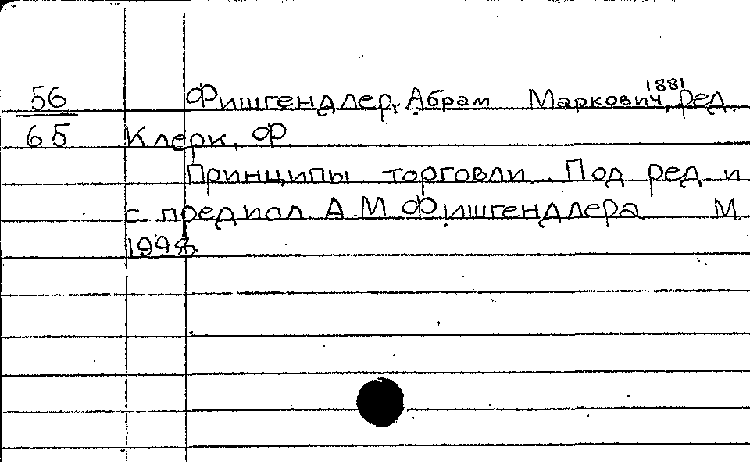 56 Фишгендлер, Абрам Маркович, 1881 ред.
65 Клерк, Ф
Принципы торговли. Под ред и
с предисл А М Фишгендлера М